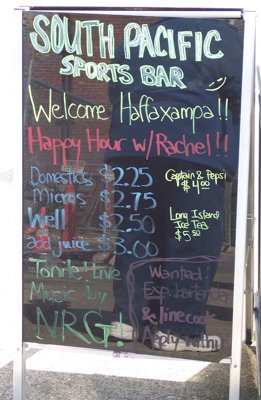 SOUTH PACIFIC
SPORTS BAR
Welcome Haffaxampa!!
Happy Hour w/Rachel!!
Domestics $2.25
Micros $2.75
Well $2.50
add juice $3.00
Captain & Pepsi
$4.00
Long Island
Ice Tea
$5.50
Tonite! Live
Music by
NRG!
Wanted:
Exp. bartender
& line cook
Apply within